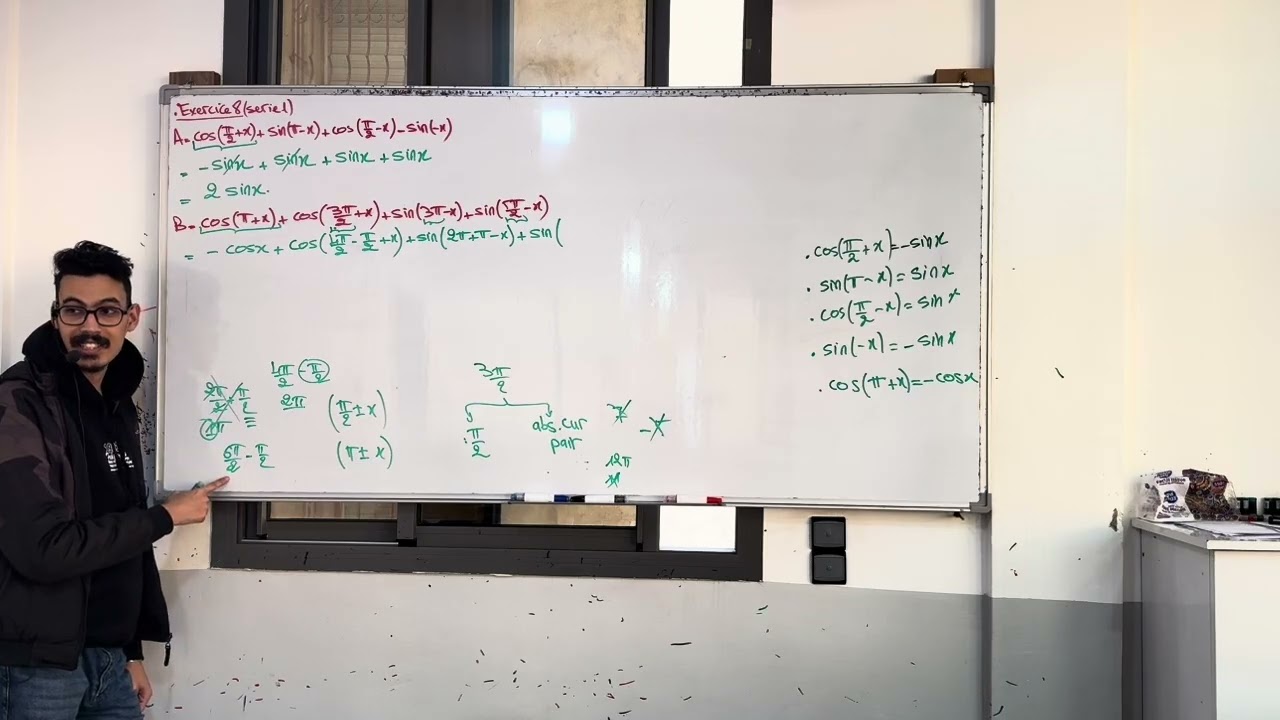 . Exercice 8 (serie 1)
A = cos(π/2 + x) + sin(π - x) + cos(π/2 - x) - sin(-x)
= - sinx + sinx + sinx + sinx
= 2 sinx.
B = cos(π + x) + cos(3π/2 + x) + sin(3π - x) + sin(5π/2 - x)
= - cosx + cos(4π/2 - π/2 + x) + sin(2π + π - x) + sin(
. cos(π/2 + x) = - sinx
. sin(π - x) = sinx
. cos(π/2 - x) = sin x
. sin(-x) = - sinx
. cos(π + x) = - cosx
4π/2 - π/2
2π
2π/2 + π/2
6π/2 - π/2
(π/2 ± x)
(π ± x)
3π/2
π/2
abs. cur
pair
12π